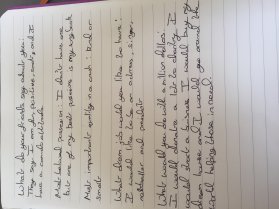 What do your friends say about you:
They say I am fun, positive, and it
have a good attitude.
Most unusual possession: I don't have one
but one of my best possession is my
Most important quality in a mate: kind or
smart
What dream job would you like to have:
I would like to be an actress, singer,
and president
What would you do with a million dollars:
I would donate a lot to charity. I
would a I would buy my
dream house and I would go around the
world helping those in need.